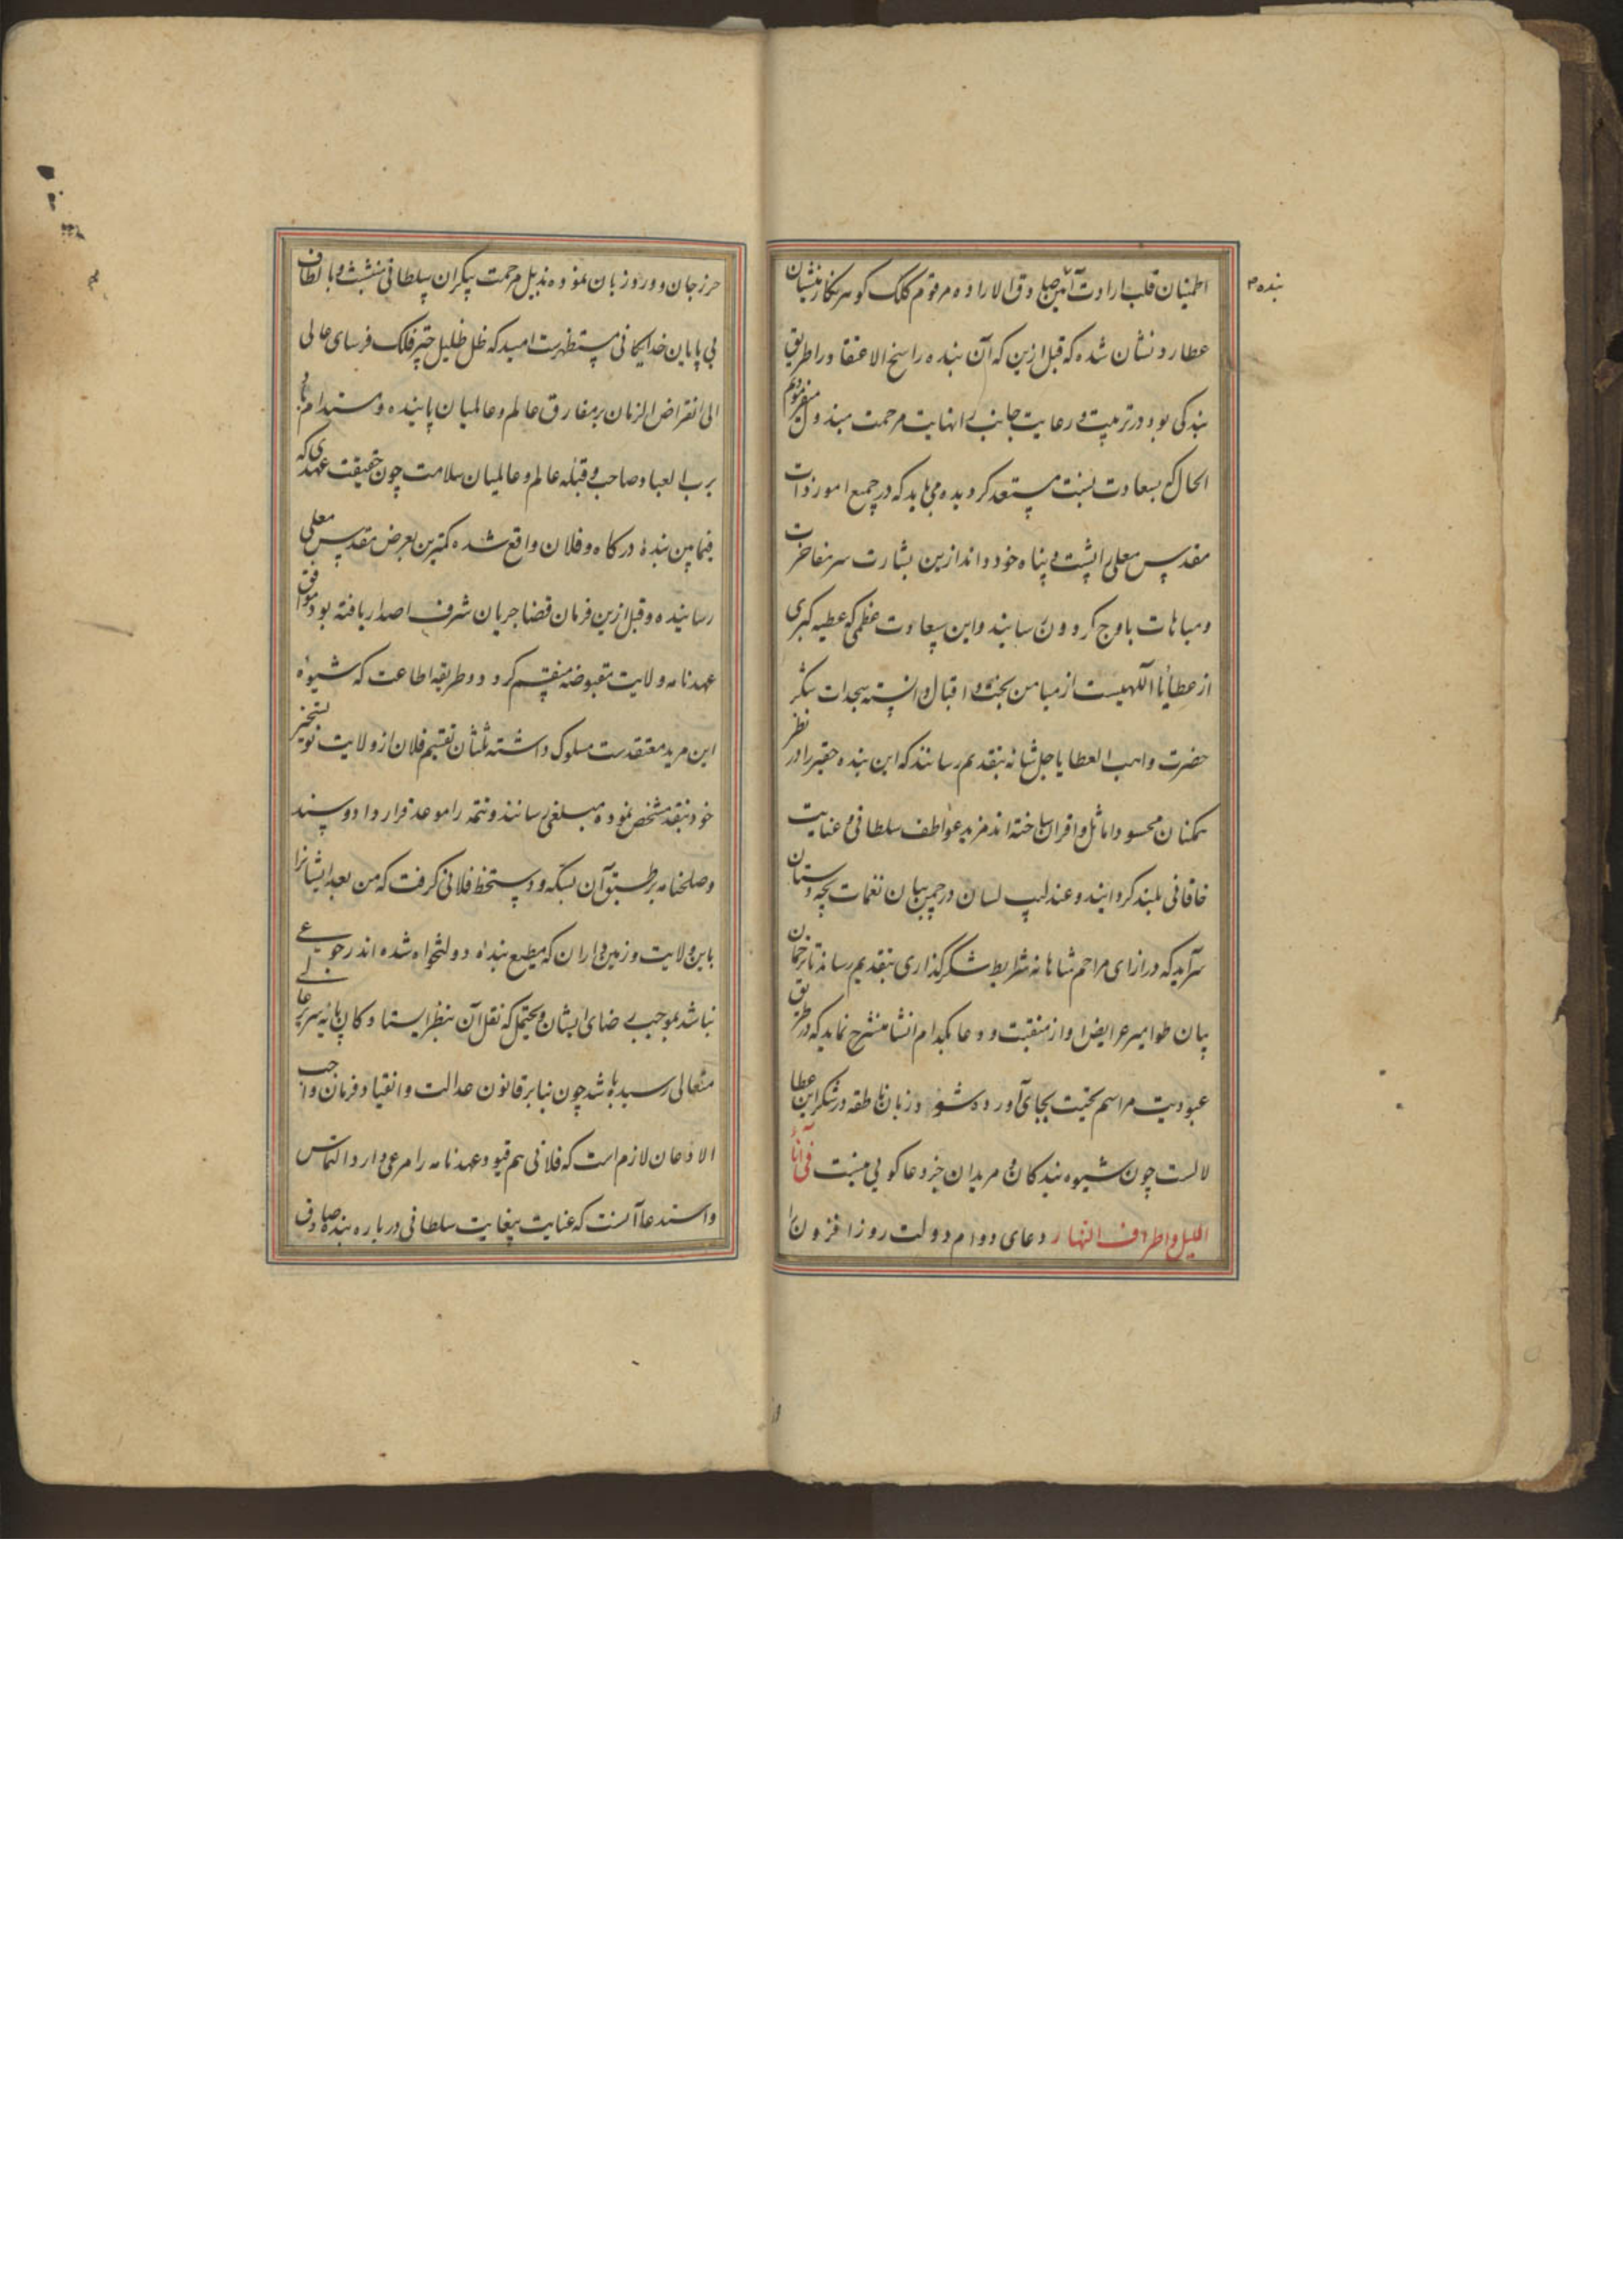 اطمینان قلب ارادت آئین صادق الاراده مرقوم کلک گوهر نگار منشیان
بنده
عطارد نشان شده که قبل ازین که آن بنده راسخ الاعتقاد را طریق
بندگی بود در تربیت و رعایت جانب بی انهایت مرحمت مبذول میفرمودیم
الحال که بسعادت مستعد گردیده می باید که در جمیع امور ذات
مقدس معلی را پشت و پناه خود داند ازین بشارت سر مفاخرت
و مباهات باوج گردون رسانید و این سعادت عظمی که عطیه کبری
از عطایای آلهیست از میامن بخت و اقبال دانسته سجدات شکر
حضرت واهب العطایا جل شانه بتقدیم رسانند که این بنده حقیر را در نظر
همکنان محسود و اماثل و اقران ساخته اند مزید عواطف سلطانی و عنایت
خاقانی بلند گردانیند و عندلیب لسان در چمن بیان نغمات بچه دستان
سرآید که در ازای مراحم شاهانه شرایط شکر گذاری بتقدیم رساند تا ترجمان
بیان طوامیر عرایض را از منقبت و دعا بکدام انشا منشرح نماید که در طریق
عبودیت مراسم تحیت بجای آورده شود و زبان ناطقه در شکر این عطا
لالست چون شیوه بندکان و مریدان جز دعا کویی نیست فی آناء
اللیل و اطراف النهار دعای دوام دولت روز افزون را
حرز جان و ورد زبان نموده بذیل مرحمت بیکران سلطانی متشبث و بالطاف
بی پایان خدایکانی مستظهرست امید که ظل ظلیل چتر فلک فرسای عالی
الی انقراض الزمان بر مفارق عالم و عالمیان پاینده و مستدام باد
برب العباد صاحب و قبله عالم و عالمیان سلامت چون حقیقت عهدی که
فیمابین بندۀ درکاه و فلان واقع شده کمترین بعرض مقدس معلی
رسانیده و قبل ازین فرمان قضا جریان شرف اصدار یافته بود موافق
عهدنامه ولایت مقبوضه منقسم کردد و طریقه اطاعت که شیوۀ
این مرید معتقدست مسلوک داشته ثلثان تقسیم فلان از ولایت نو تسخیر
خود بنقد مشخص نموده مبلغی رسانند و تتمه را موعد قرار داد و سند
و صلحنامه بر طبق آن بسکه و دستخط فلانی کرفت که من بعد ایشانرا
باین ولایت و زمین داران که مطیع بنده دولتخواه شده اند رجوعی
نباشد بموجب رضای ایشان و یحتمل که نقل آن بنظر ایستادکان پایه سریر عالی
متعالی رسیده باشد چون بنابر قانون عدالت و انقیاد فرمان واجب
الاذعان لازم است که فلانی هم قیود عهدنامه را مرعی دارد التماس
و استدعا آنست که عنایت بیغایت سلطانی درباره بنده صادق